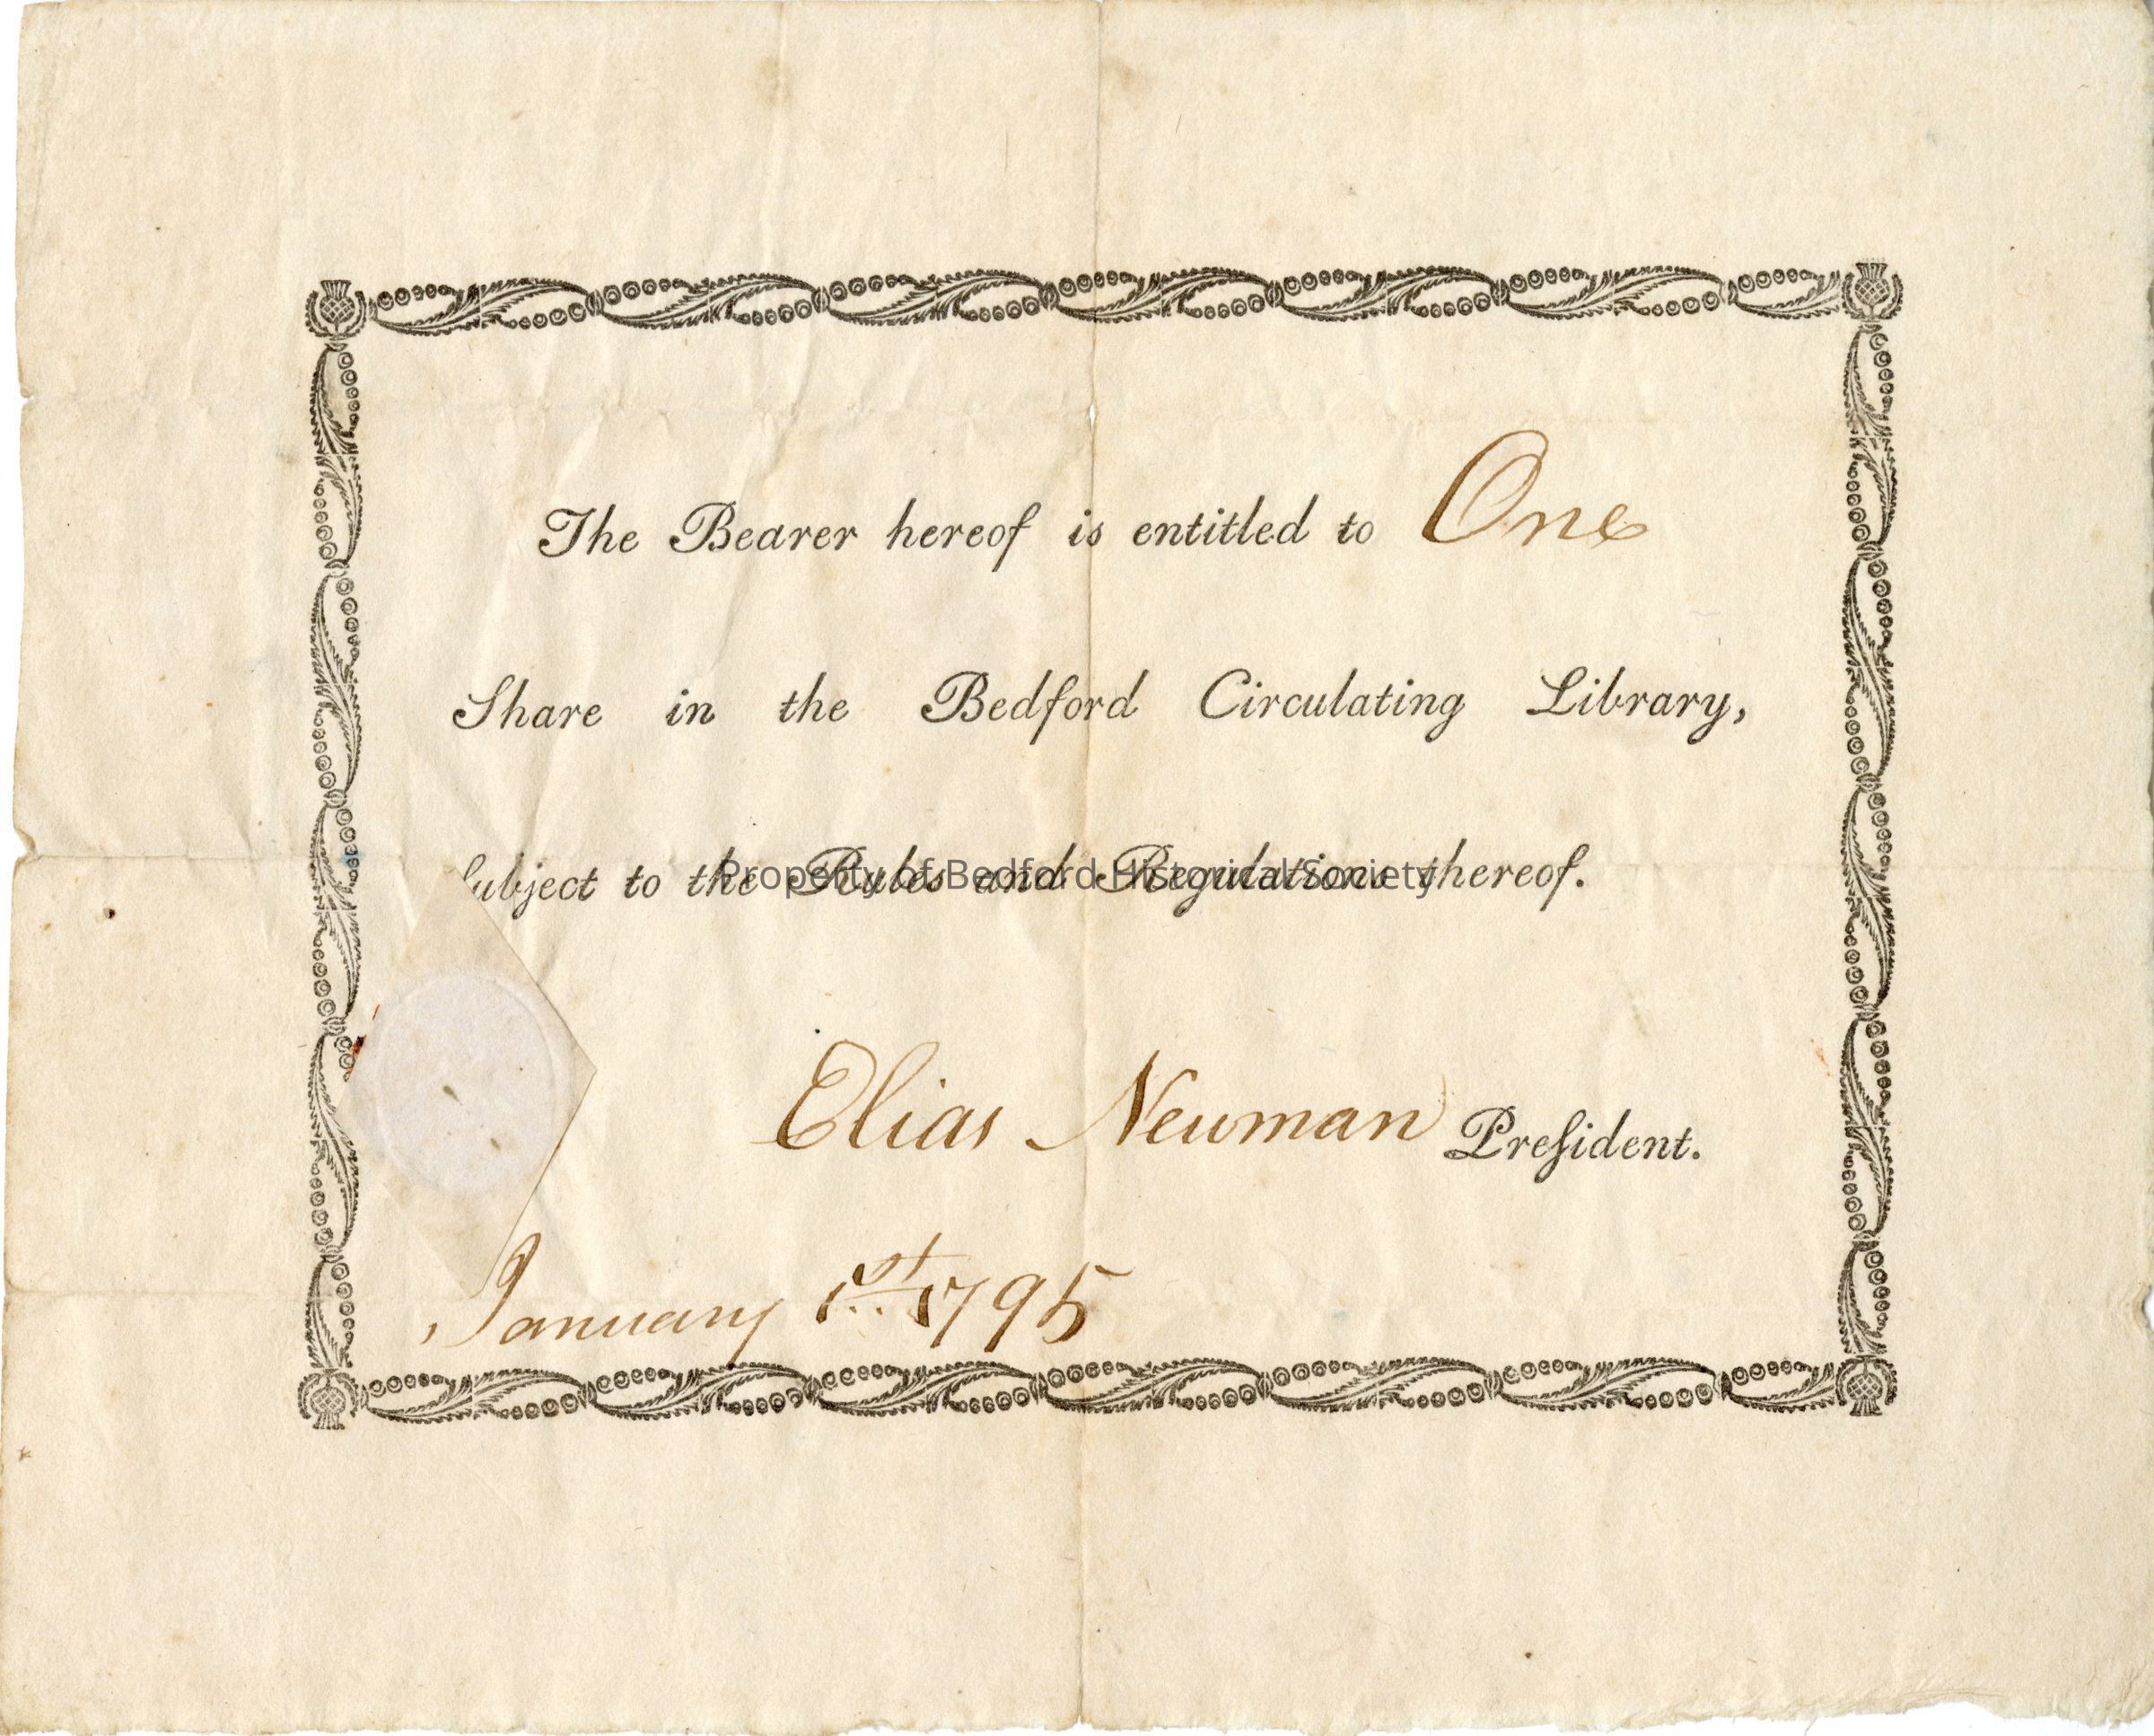 The Bearer hereof is entitled to One
Share in the Bedford Circulating Library,
ſubject to the Rules and Regulations thereof.
Property of Bedford Historical Society
Elias Newman Preſident.
January 1st 1795